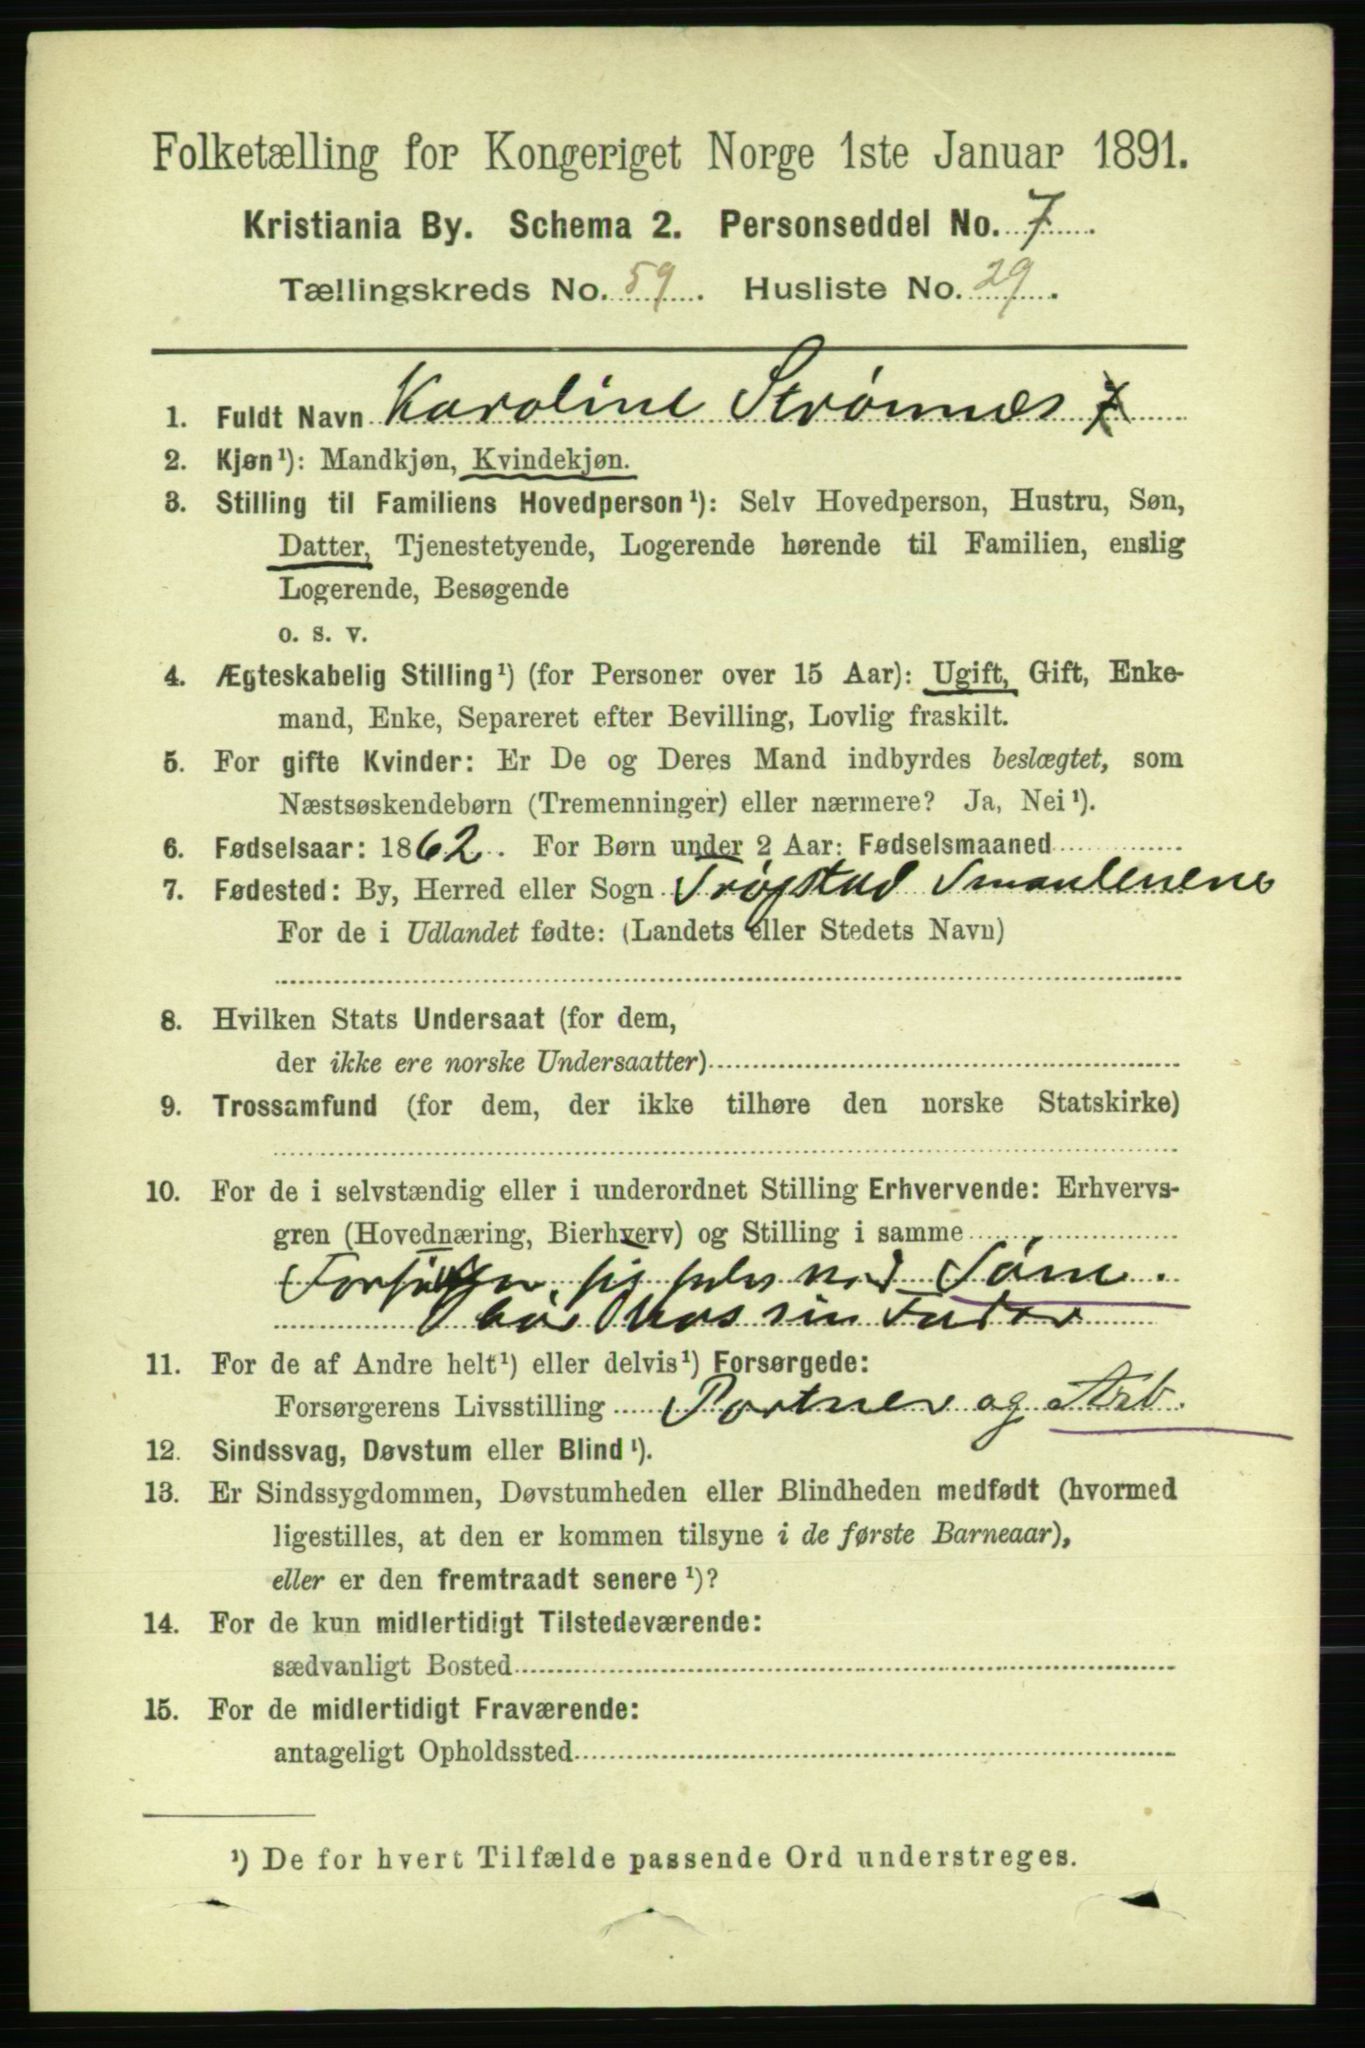 Folketælling for Kongeriget Norge 1ste Januar 1891.
Kristiania By. Schema 2. Personseddel No. 7.
Tællingskreds No. 59. Husliste No. 29.
1. Fuldt Navn Karoline Strømnæs
2. Kjøn¹): Mandkjøn, Kvindekjøn.
3. Stilling til Familiens Hovedperson¹): Selv Hovedperson, Hustru, Søn,
Datter, Tjenestetyende, Logerende hørende til Familien, enslig
Logerende, Besøgende
o. s. v.
4. Ægteskabelig Stilling¹) (for Personer over 15 Aar): Ugift, Gift, Enke-
mand, Enke, Separeret efter Bevilling, Lovlig fraskilt.
5. For gifte Kvinder: Er De og Deres Mand indbyrdes beslægtet, som
Næstsøskendebørn (Tremenninger) eller nærmere? Ja, Nei¹).
6. Fødselsaar: 1862. For Børn under 2 Aar: Fødselsmaaned
7. Fødested: By, Herred eller Sogn Trøgstad Smaalenene
For de i Udlandet fødte: (Landets eller Stedets Navn)
8. Hvilken Stats Undersaat (for dem,
der ikke ere norske Undersaatter)
9. Trossamfund (for dem, der ikke tilhøre den norske Statskirke)
10. For de i selvstændig eller i underordnet Stilling Erhvervende: Erhvervs-
gren (Hovednæring, Bierhverv) og Stilling i samme
sig selv ved Søm.
bor hos sin Fader
11. For de af Andre helt¹) eller delvis¹) Forsørgede:
Forsørgerens Livsstilling Portner og Arb.
12. Sindssvag, Døvstum eller Blind¹).
13. Er Sindssygdommen, Døvstumheden eller Blindheden medfødt (hvormed
ligestilles, at den er kommen tilsyne i de første Barneaar),
eller er den fremtraadt senere¹)?
14. For de kun midlertidigt Tilstedeværende:
sædvanligt Bosted
15. For de midlertidigt Fraværende:
antageligt Opholdssted
¹) De for hvert Tilfælde passende Ord understreges.